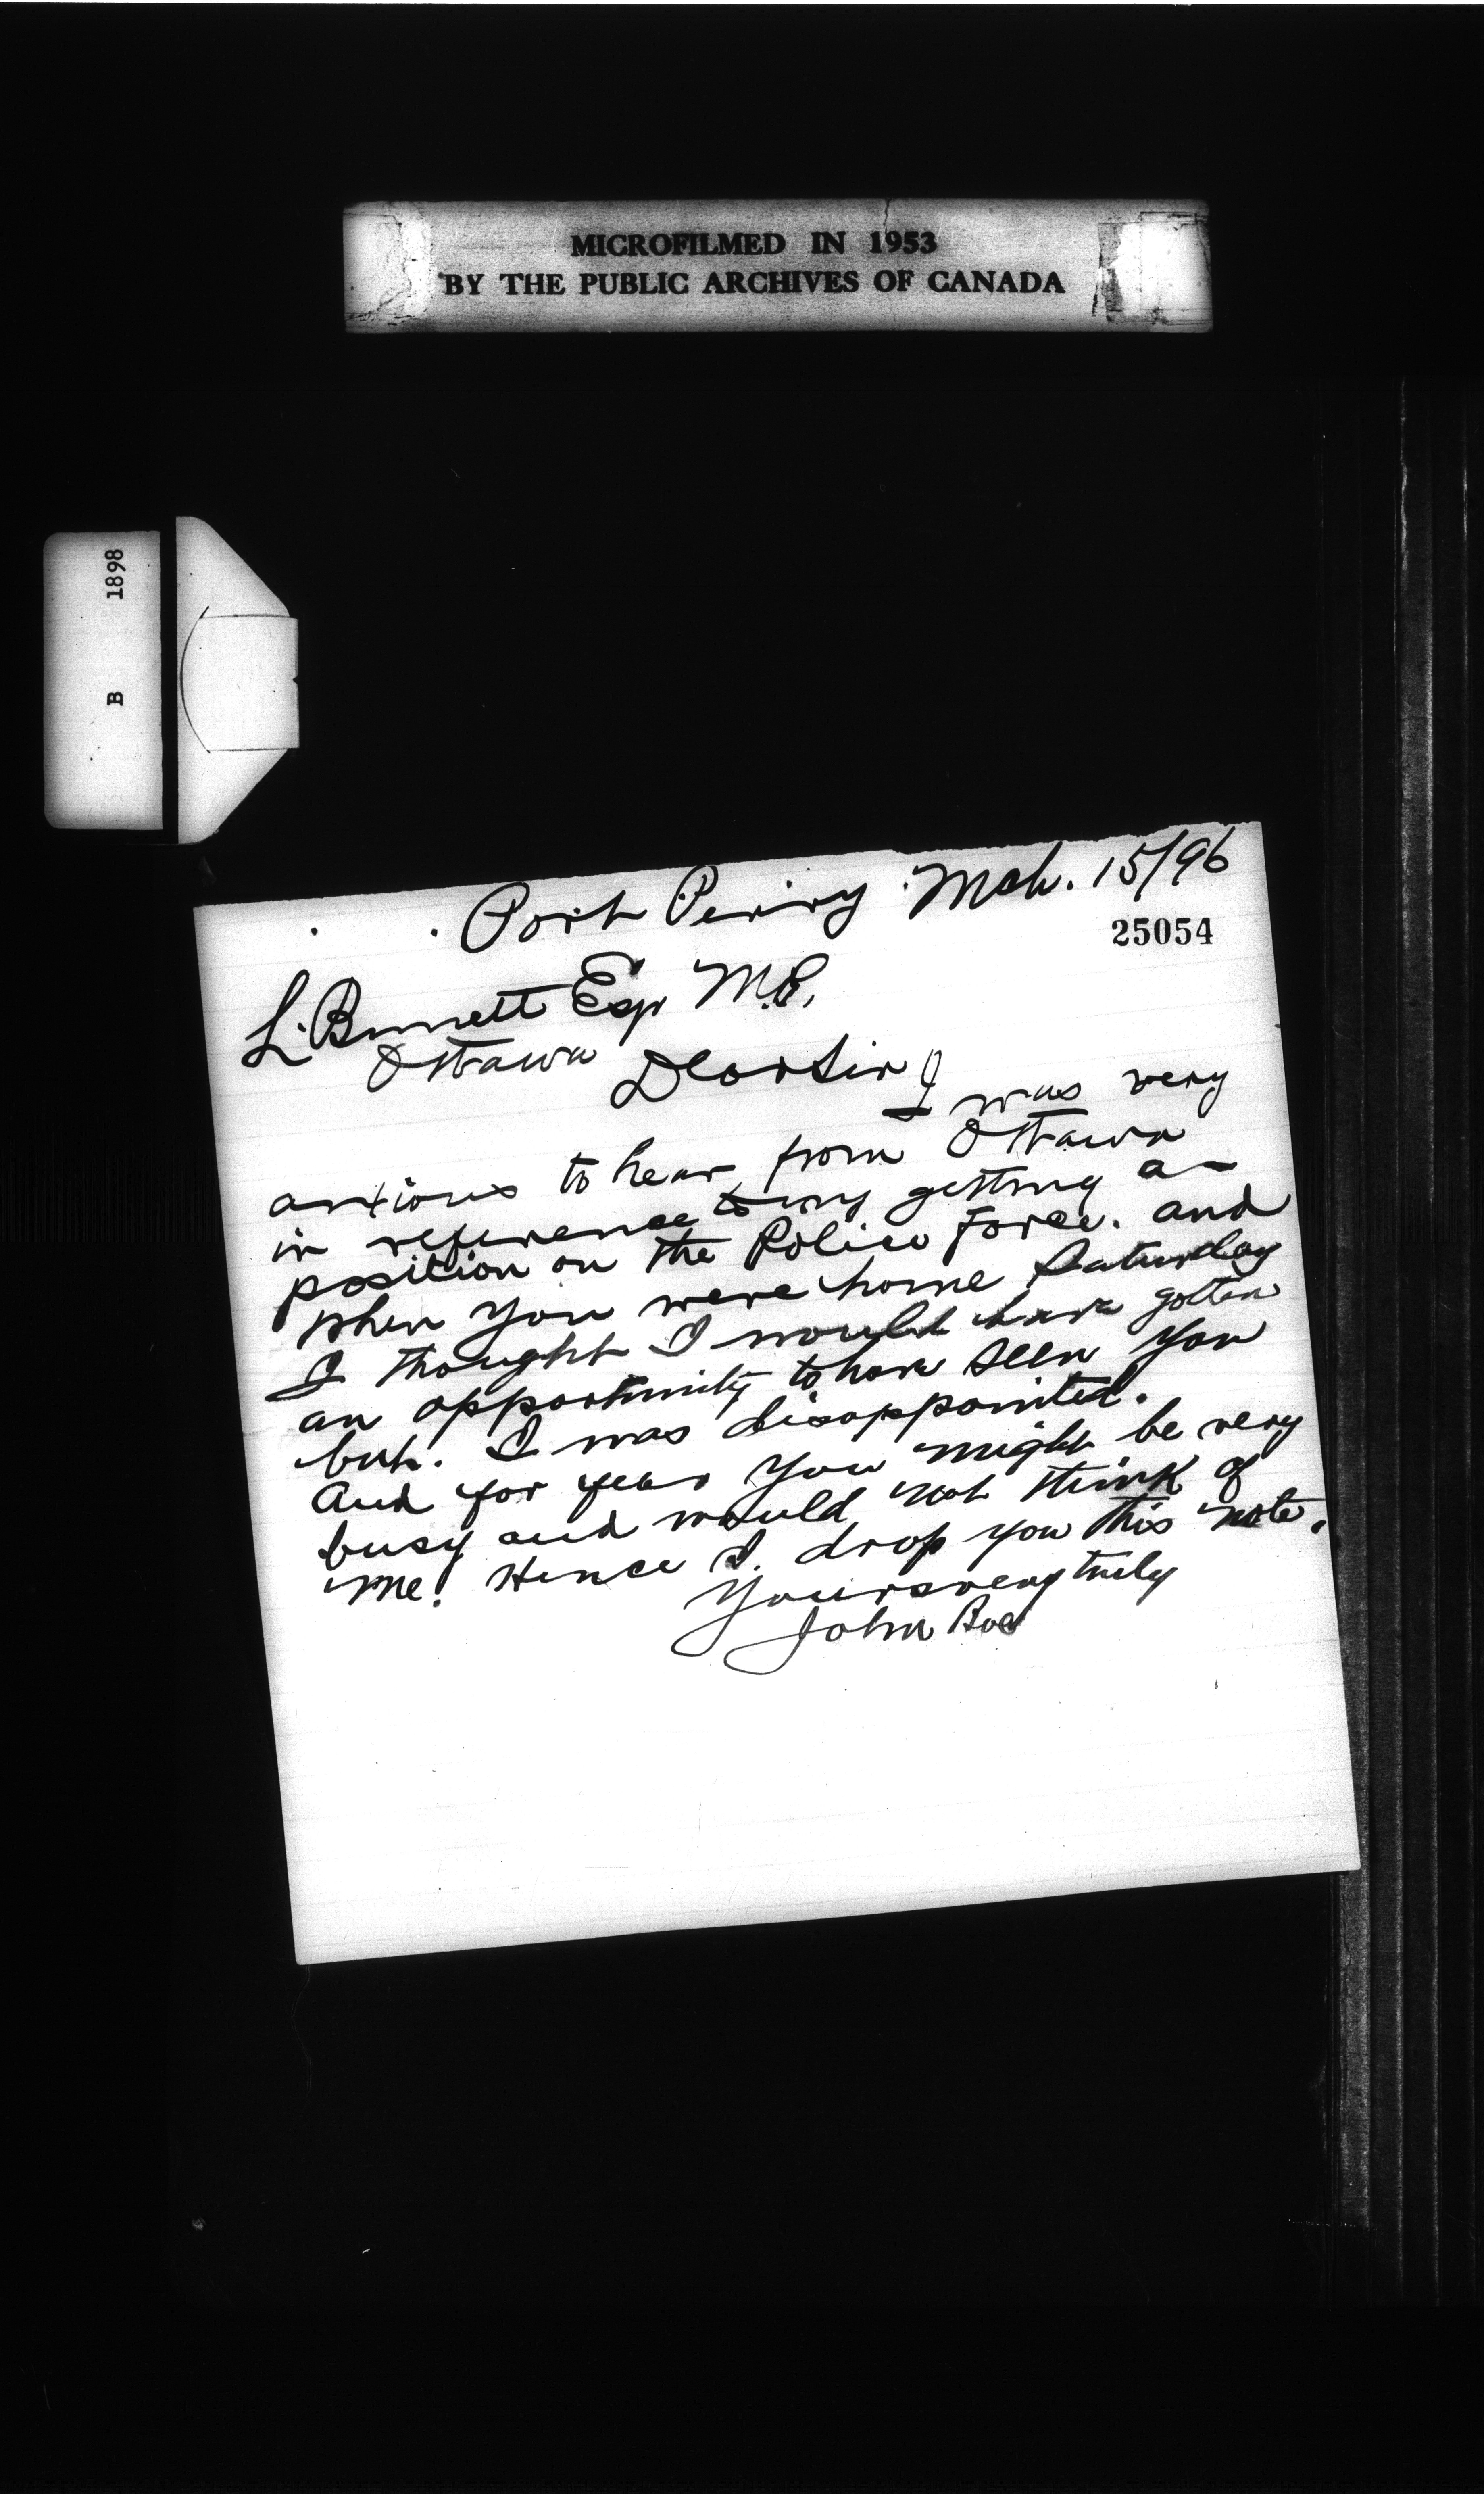 MICROFILMED IN 1953
BY THE PUBLIC ARCHIVES OF CANADA
B 1898
Port Perry Mch. 15/96
25054
L. Burnett Esqr M.P.
Ottawa
Dear Sir
I was very
anxious to hear from Ottawa
in reference to my getting a
position on the Police Force. and
when you were home Saturday
I thought I would have gotten
an opportunity to have seen you
but. I was disappointed.
And for fear you might be very
busy and would not think of
me! Hence I drop you this note.
Yours very truly
John